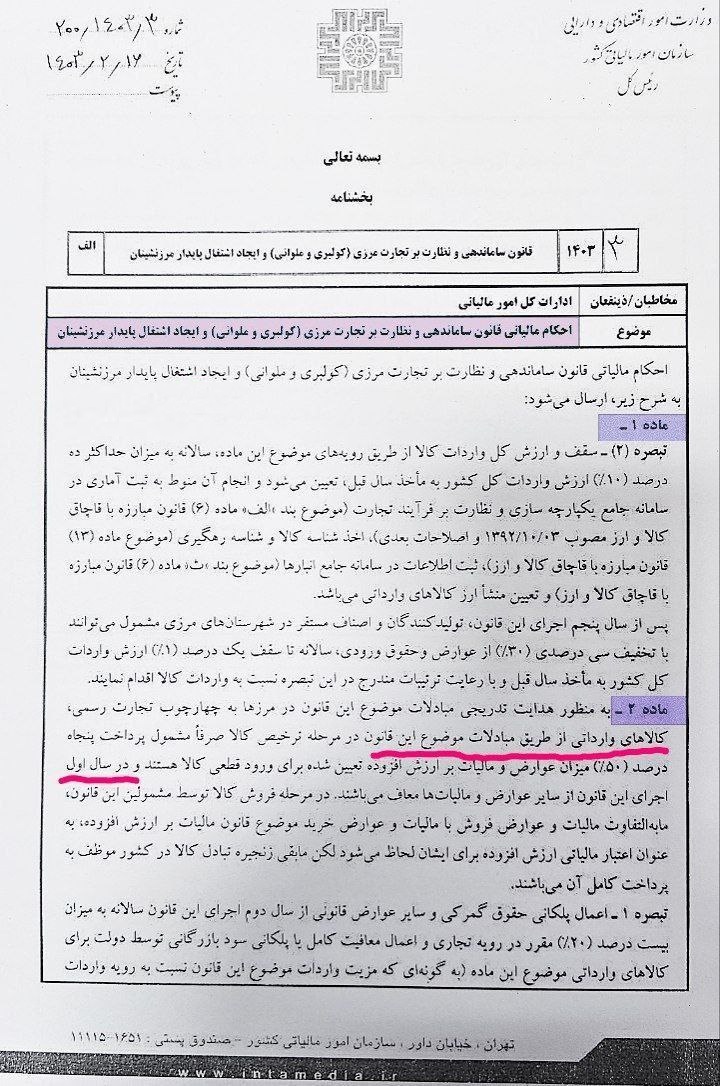 وزارت امور اقتصادی و دارایی
سازمان امور مالیاتی کشور
رئیس کل
شماره ۲۰۰/۱۴۰۳/۳
تاریخ ۱۴۰۳/۲/۱۶
پیوست
بسمه تعالی
بخشنامه
۳ ۱۴۰۳ قانون ساماندهی و نظارت بر تجارت مرزی (کولبری و ملوانی) و ایجاد اشتغال پایدار مرزنشینان الف
مخاطبان/ذینفعان ادارات کل امور مالیاتی
موضوع احکام مالیاتی قانون ساماندهی و نظارت بر تجارت مرزی (کولبری و ملوانی) و ایجاد اشتغال پایدار مرزنشینان
احکام مالیاتی قانون ساماندهی و نظارت بر تجارت مرزی (کولبری و ملوانی) و ایجاد اشتغال پایدار مرزنشینان
به شرح زیر، ارسال می‌شود:
ماده ۱ـ
تبصره (۲) ـ سقف و ارزش کل واردات کالا از طریق رویه‌های موضوع این ماده، سالانه به میزان حداکثر ده
درصد (۱۰٪) ارزش واردات کل کشور به مأخذ سال قبل، تعیین می‌شود و انجام آن منوط به ثبت آماری در
سامانه جامع یکپارچه سازی و نظارت بر فرآیند تجارت (موضوع بند «الف» ماده (۶) قانون مبارزه با قاچاق
کالا و ارز مصوب ۱۳۹۲/۱۰/۰۳ و اصلاحات بعدی)، اخذ شناسه کالا و شناسه رهگیری (موضوع ماده (۱۳)
قانون مبارزه با قاچاق کالا و ارز)، ثبت اطلاعات در سامانه جامع انبارها (موضوع بند «ث» ماده (۶) قانون مبارزه
با قاچاق کالا و ارز) و تعیین منشأ ارز کالاهای وارداتی می‌باشد.
پس از سال پنجم اجرای این قانون، تولیدکنندگان و اصناف مستقر در شهرستان‌های مرزی مشمول می‌توانند
با تخفیف سی درصدی (۳۰٪) از عوارض وحقوق ورودی، سالانه تا سقف یک درصد (۱٪) ارزش واردات
کل کشور به مأخذ سال قبل و با رعایت ترتیبات مندرج در این تبصره نسبت به واردات کالا اقدام نمایند.
ماده ۲ ـ به منظور هدایت تدریجی مبادلات موضوع این قانون در مرزها به چهارچوب تجارت رسمی،
کالاهای وارداتی از طریق مبادلات موضوع این قانون در مرحله ترخیص کالا صرفاً مشمول پرداخت پنجاه
درصد (۵۰٪) میزان عوارض و مالیات بر ارزش افزوده تعیین شده برای ورود قطعی کالا هستند و در سال اول
اجرای این قانون از سایر عوارض و مالیات‌ها معاف می‌باشند. در مرحله فروش کالا توسط مشمولین این قانون،
مابه‌التفاوت مالیات و عوارض فروش با مالیات و عوارض خرید موضوع قانون مالیات بر ارزش افزوده، به
عنوان اعتبار مالیاتی ارزش افزوده برای ایشان لحاظ می‌شود لکن مابقی زنجیره تبادل کالا در کشور موظف به
پرداخت کامل آن می‌باشند.
تبصره ۱ ـ اعمال پلکانی حقوق گمرکی و سایر عوارض قانونی از سال دوم اجرای این قانون سالانه به میزان
بیست درصد (۲۰٪) مقرر در رویه تجاری و اعمال معافیت کامل یا پلکانی سود بازرگانی توسط دولت برای
کالاهای وارداتی موضوع این ماده (به گونه‌ای که مزیت واردات موضوع این قانون نسبت به رویه واردات
تهران ، خیابان داور ، سازمان امور مالیاتی کشور - صندوق پستی : ۱۶۵۱-۱۱۱۱۵
www.intamedia.ir